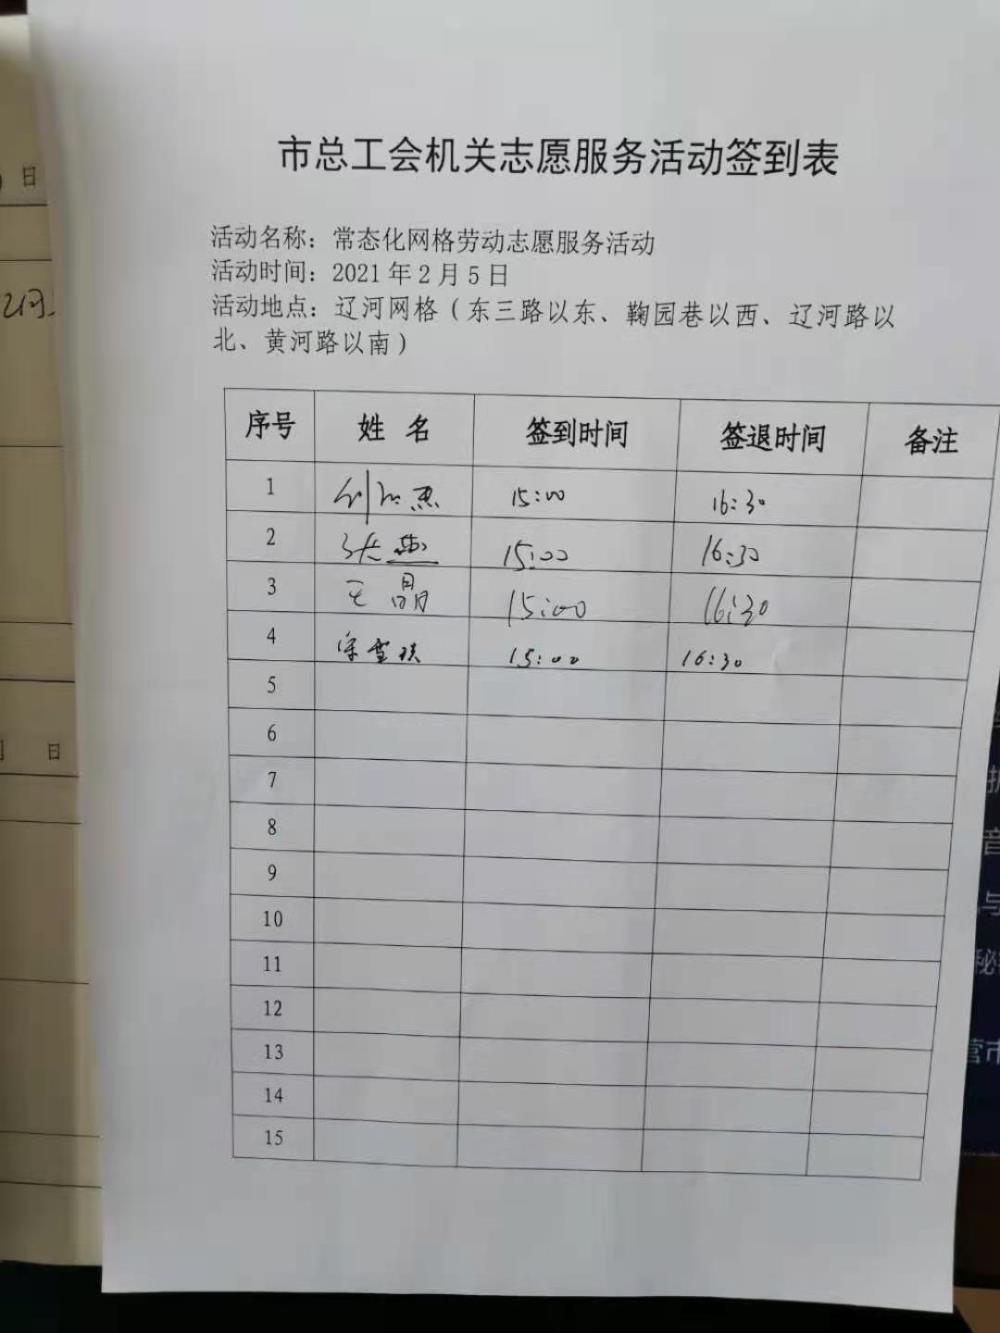 市总工会机关志愿服务活动签到表
活动名称：常态化网格劳动志愿服务活动
活动时间：2021年2月5日
活动地点：辽河网格（东三路以东、鞠园巷以西、辽河路以
北、黄河路以南）
序号 姓名 签到时间 签退时间 备注
1 15:00 16:30
2 张燕 15:00 16:30
3 王晶 15:00 16:30
4 15:00 16:30
5
6
7
8
9
10
11
12
13
14
15
日
日
音
与
秘
营市